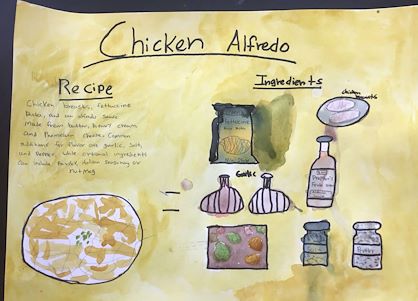 Chicken Alfredo
Recipe
Chicken breasts, fettuccine
Pasta, and an alfredo sauce
Made from butter, heavy cream
and Parmesan cheese. Common
additions for flavor are garlic, Salt,
and Pepper, while optional ingredients
Can include Parsley, Italian seasoning or
nutmeg
Ingredients
chicken
breasts
fettuccine
Garlic